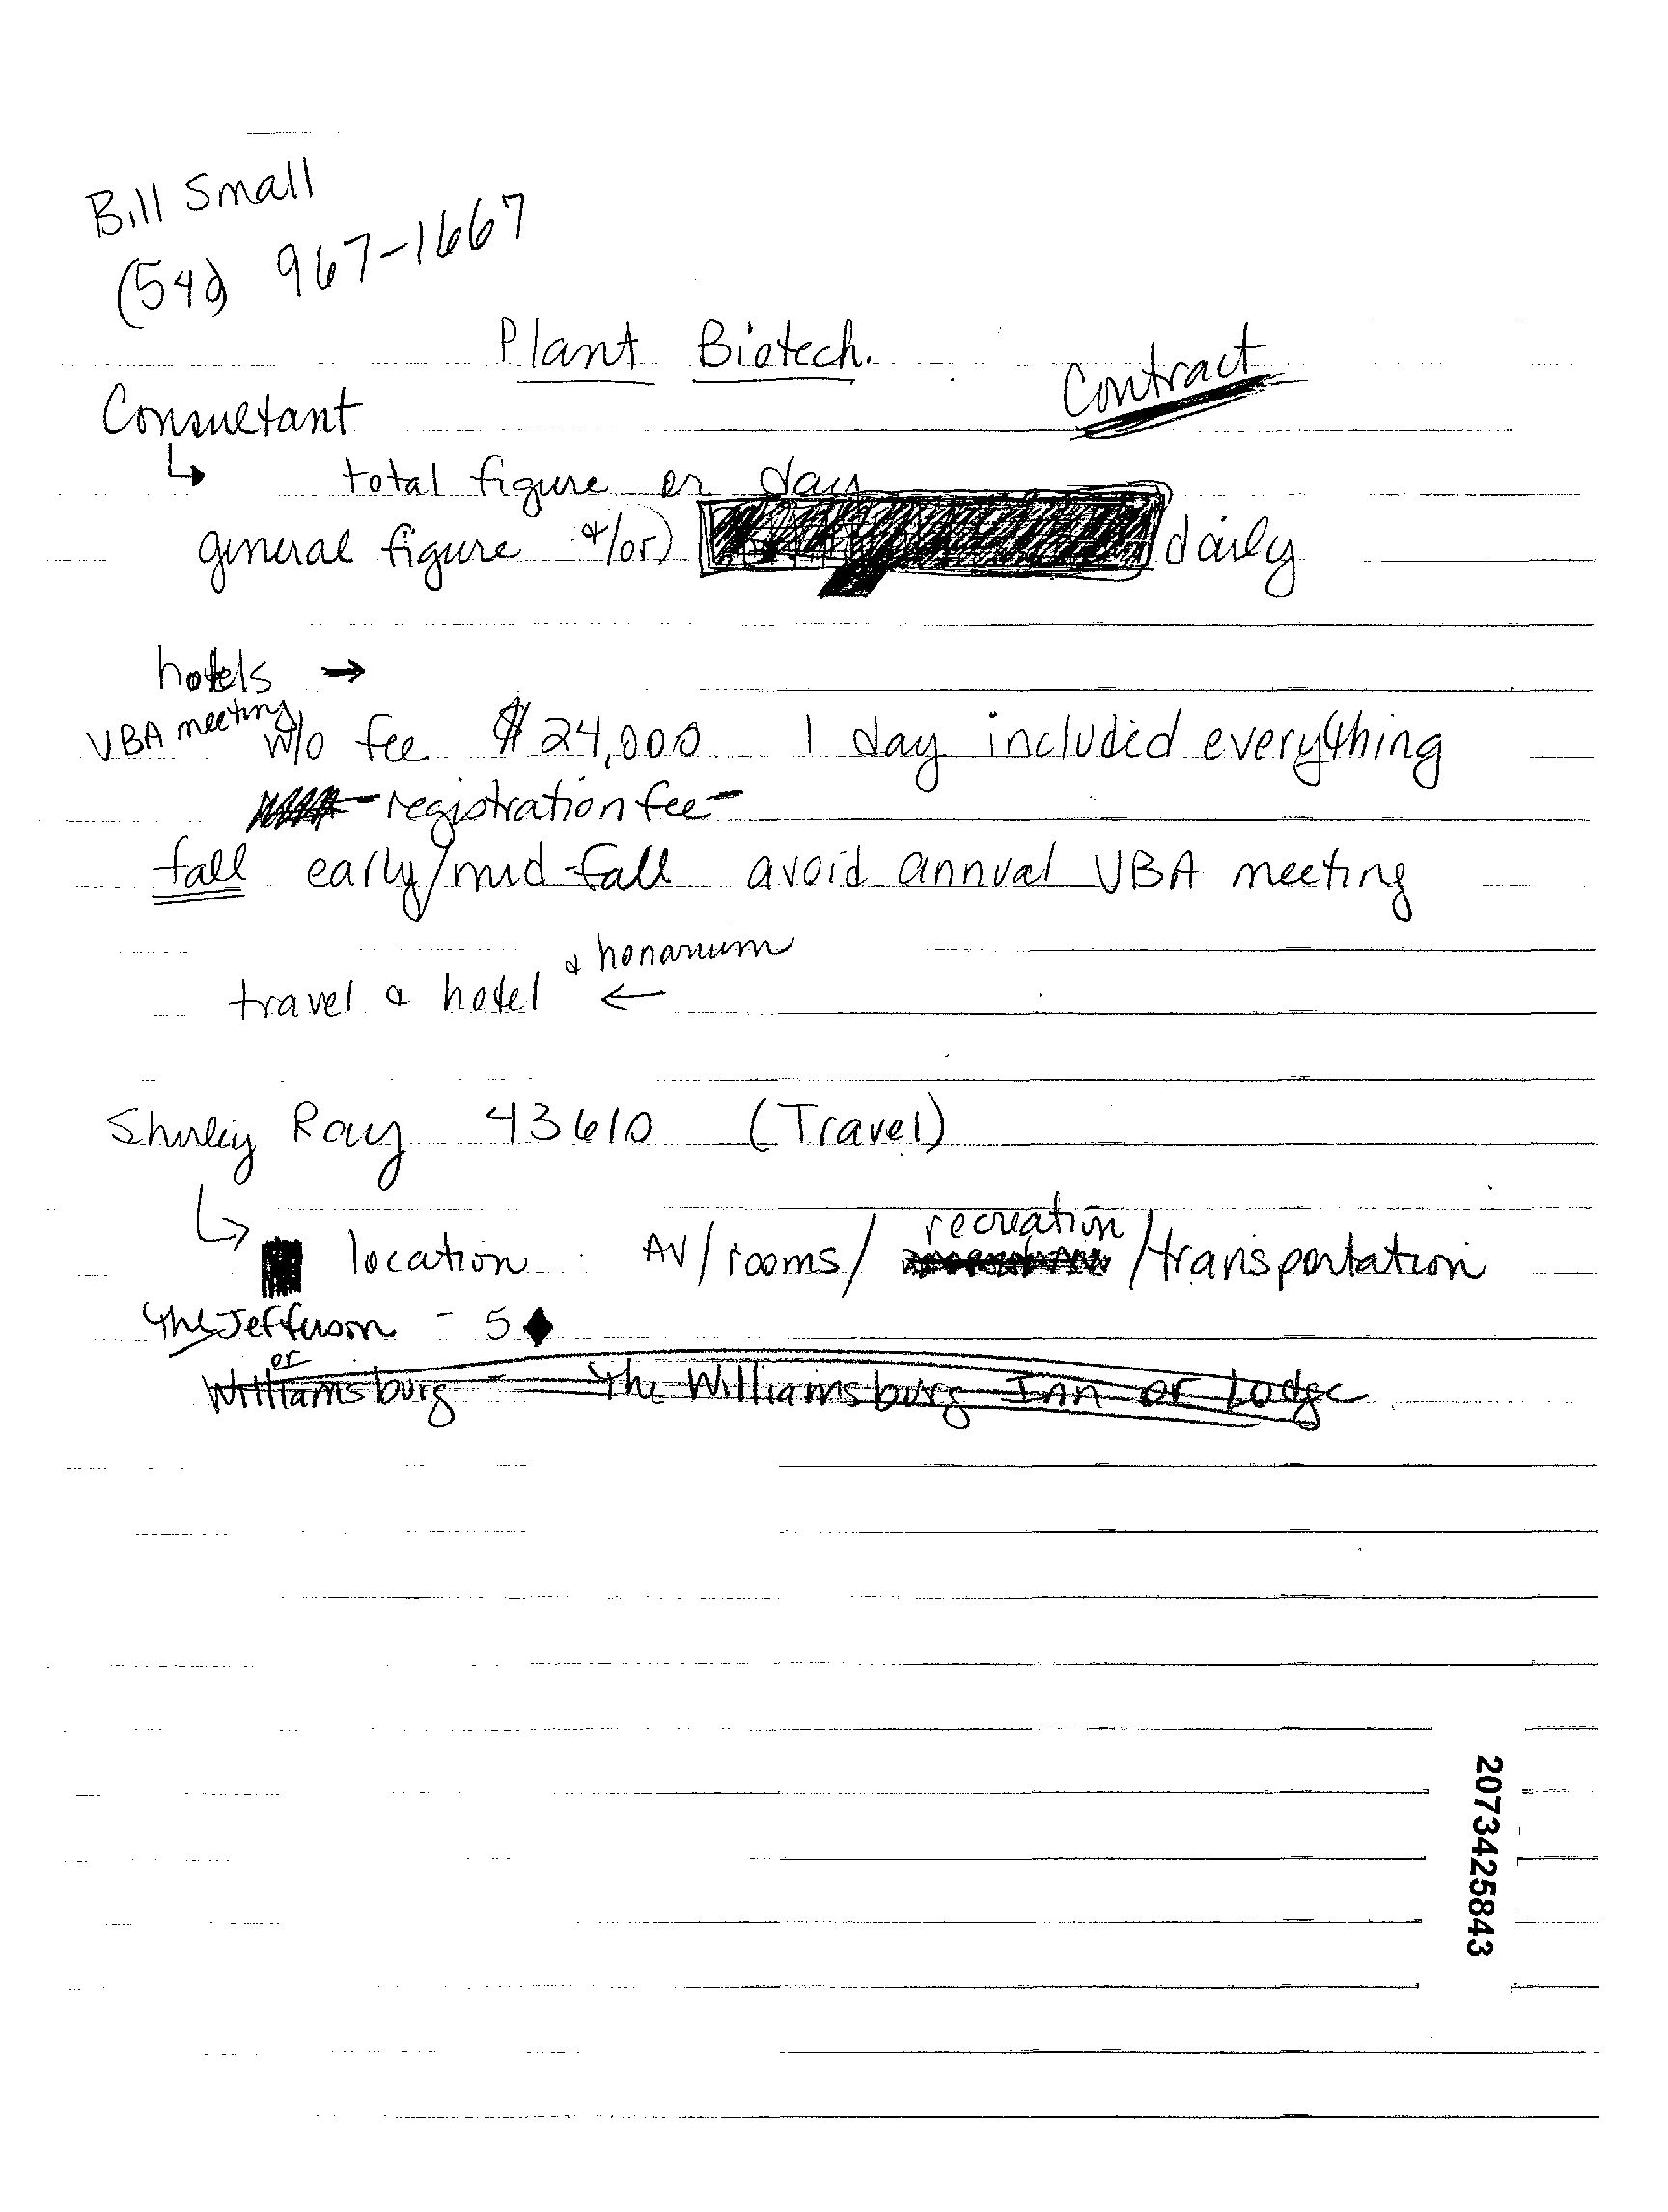 Bill Small
(540) 967-1667
Plant Biotech.
Contract
Consultant
↳ total figure or day
general figure &/or) daily
hotels →
VBA meeting
w/o fee $24,000 1 day included everything
- registration fee -
fall early/mid-fall avoid annual VBA meeting
& honarium
travel & hotel ←
Shirley Ray 43610 (Travel)
recreation
↳ location AV/rooms/ /transportation
The Jefferson - 5♦
or
Williamsburg - The Williamsburg Inn or Lodge
2073425843